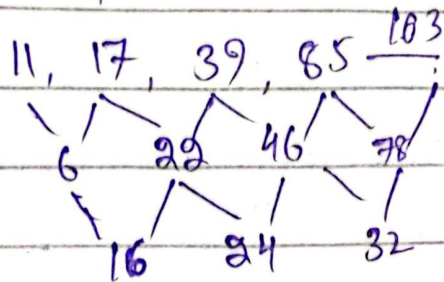 11, 17, 39, 85 163
6 22 46 78
16 24 32